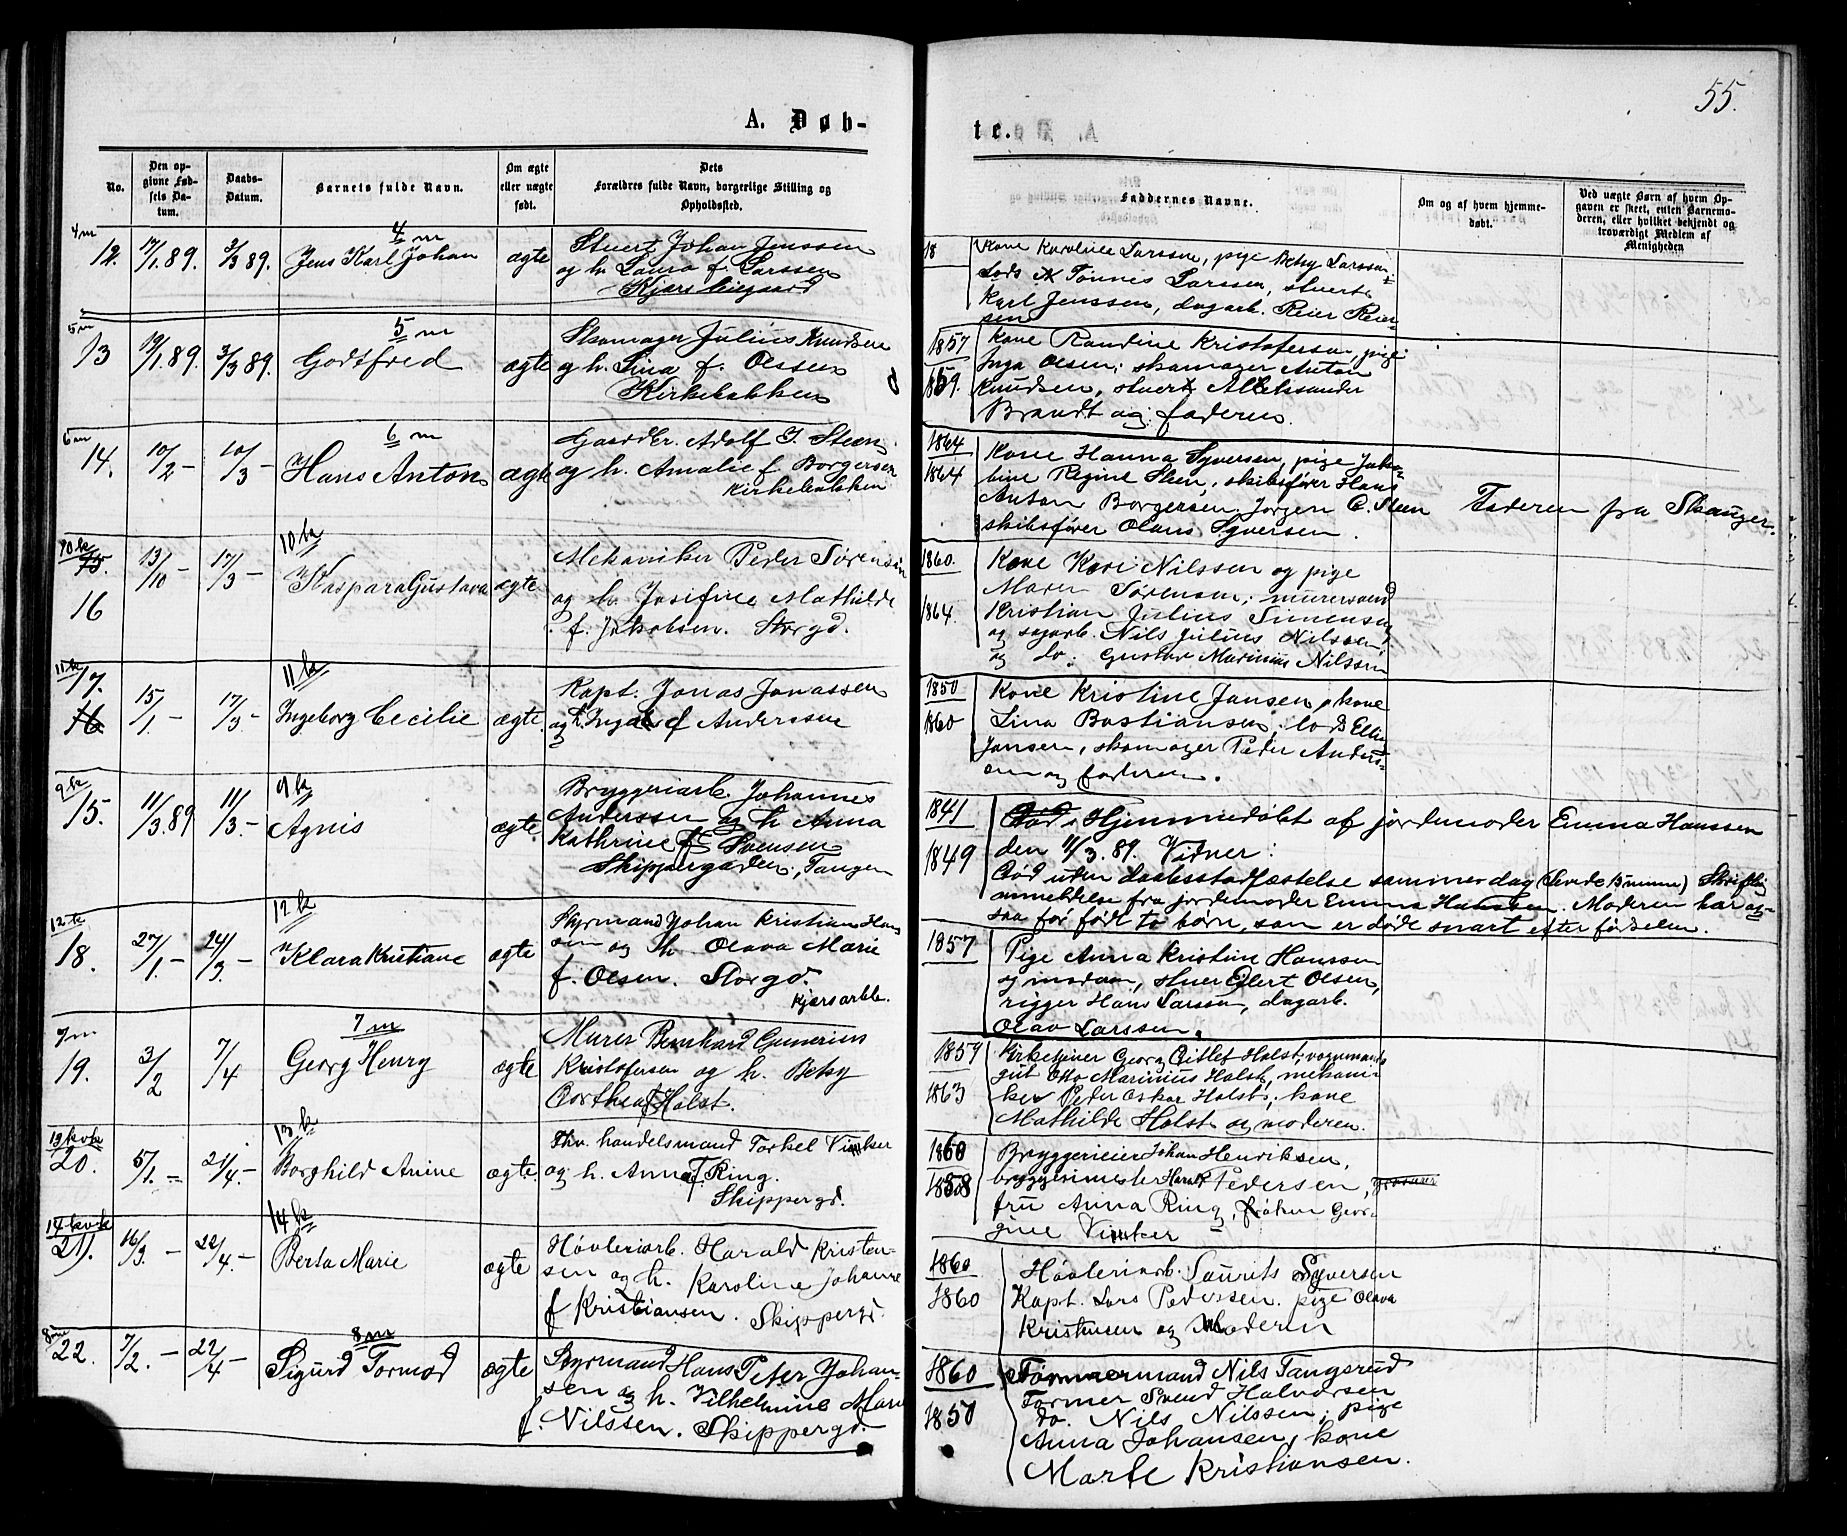 55.
A. Døb-
te.
No.
Den op-
givne Fød-
sels Da-
tum.
Daabs-
Datum.
Barnets fulde Navn.
Om ægte
eller uægte
født.
Dets
Forældres fulde Navn, borgerlige Stilling og
Opholdssted.
Faddernes Navne.
Om og af hvem hjemme-
døbt.
Ved uægte Børn af hvem Op-
gaven er skeet, enten Barnemo-
deren, eller hvilket bekjendt og
troværdigt Medlem af
Menigheden
4 m
12. 17/1. 89. 3/3 89. Jens Karl Johan ægte
4 m
Stuert Johan Jenssen
og h. Laura f. Larssen
18
Kone Karoline Larssen, pige Betsy Larssen
Lods Tønnes Larssen, stuert
Karl Jenssen, dagarb. Reier Reier-
sen
5 m
13 19/1. 89. 3/3 89. Godtfred ægte
5 m
Skomager Julius Knudsen
og h. Lina f. Olssen
Kirkebakken
1857
1859.
Kone Randine Kristofersen, pige
Inga Olsen, skomager Anton
Knudsen, stuert Aleksander
Brandt og faderen.
6 m
14. 10/2 - 10/3 - Hans Anton ægte
6 m
Gaardbr. Adolf J. Steen
og h. Amalie f Borgersen
Kirkebakken
1864
1864
Kone Hanna Syversen, pige Jako-
bine Regine Steen, skibsfører Hans
Anton Borgersen, Jørgen C. Steen
skibsfører Olaus Syversen.
Faderen fra Skauger.
10 k
15.
16
13/10 - 17/3 - Kaspara Gustava ægte
10 k
Mekaniker Peder Sørensen
og h. Josefine Mathilde
f. Jakobsen. Storgd.
1860.
1864.
Kone Kari Nilssen og pige
Maren Sørensen, murersvend
Kristian Julius Simensen
og sagarb. Nils Julius Nilssen,
og do. Gustav Marinius Nilssen
11 k
17.
16
15/1 - 17/3 - Ingeborg Cecilie ægte.
11 k
Kapt. Jonas Jonassen
og h. Inga f Anderssen
1850
1860
Kone Kristine Jansen, kone
Lina Bastiansen, lods Ellef
Jansen, skomager Peder Anders-
en og faderen.
9 k
15. 11/3. 89 11/3. - Agnis ægte.
9 k
Bryggeriarb. Johannes
Anderssen og h Anna
Kathrine f Svensen
Skippergaden, Tangen
1841
1849
Hjemmedøbt af jordemoder Emma Hanssen
den 11/3. 89. Vidner:
Død uden daabsstadfæstelse samme dag Skriftlig
anmeldelse fra jordemoder Emma Hanssen. Moderen har og-
saa før født to børn, som er døde snart efter fødselen.
12 k
18. 27/1. - 24/3 - Klara Kristiane ægte
12 k
Styrmand Johan Kristian Han-
sen og h. Olava Marie
f. Olsen. Storgd.
1857
Pige Anna Kristine Hanssen
og madam, stuer Eilert Olsen,
rigger Hans Larssen, dagarb.
Olav Larssen.
7 m
19. 3/2 7/4 Georg Henry ægte
7 m
Murer Bernhard Gunerius
Kristofersen og h. Betsy
Dorthea f Holst.
1859
1863
Kirketjener Georg Ditlef Holst, vognmands
gut Otto Marinius Holst, mekani-
ker Peder Oskar Holst, kone
Mathilde Holst og moderen.
13 kvk
20. 5/1. - 21/4. - Borghild Anine ægte
13 k
Fhv. handelsmand Torkel Vinkser
og h. Anna f Ring.
Skippergd.
1860
1858
Bryggerieier Johan Henriksen,
bryggerimester Harald Pedersen,
fru Anna Ring, frøken Geor-
gine
14 kvk
21. 16/3 - 22/4. - Berta Marie ægte
14 k
Høvleriarb. Harald Kristen-
sen og h. Karoline Johanne
f Kristiansen. Skippergd.
1860
1860
Høvleriarb. Laurits Syversen
Kapt. Lars Pedersen. pige Olava
Kristensen og Moderen
8 m
22. 7/2. - 22/4 - Sigurd Tormod ægte
8 m
Styrmand Hans Peter Johan-
sen og h. Vilhelmine Marie
f. Nilssen. Skippergd.
1860
1850
Tømmermand Nils Tangerud
Former Svend Halvorsen
do. Nils Nilssen, pige
Anna Johansen, kone
Marte Kristiansen.